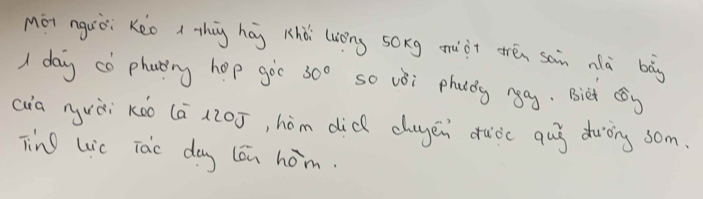 Một người kéo 1 thùng hàng khối lượng 50kg trượt trên sàn nhà bằng
1 dây có phương hợp góc 30° so với phương ngang. Biết công
của người kéo là 120J, hòm dịch chuyển được quãng đường 50m.
Tính lực tác dụng lên hòm.